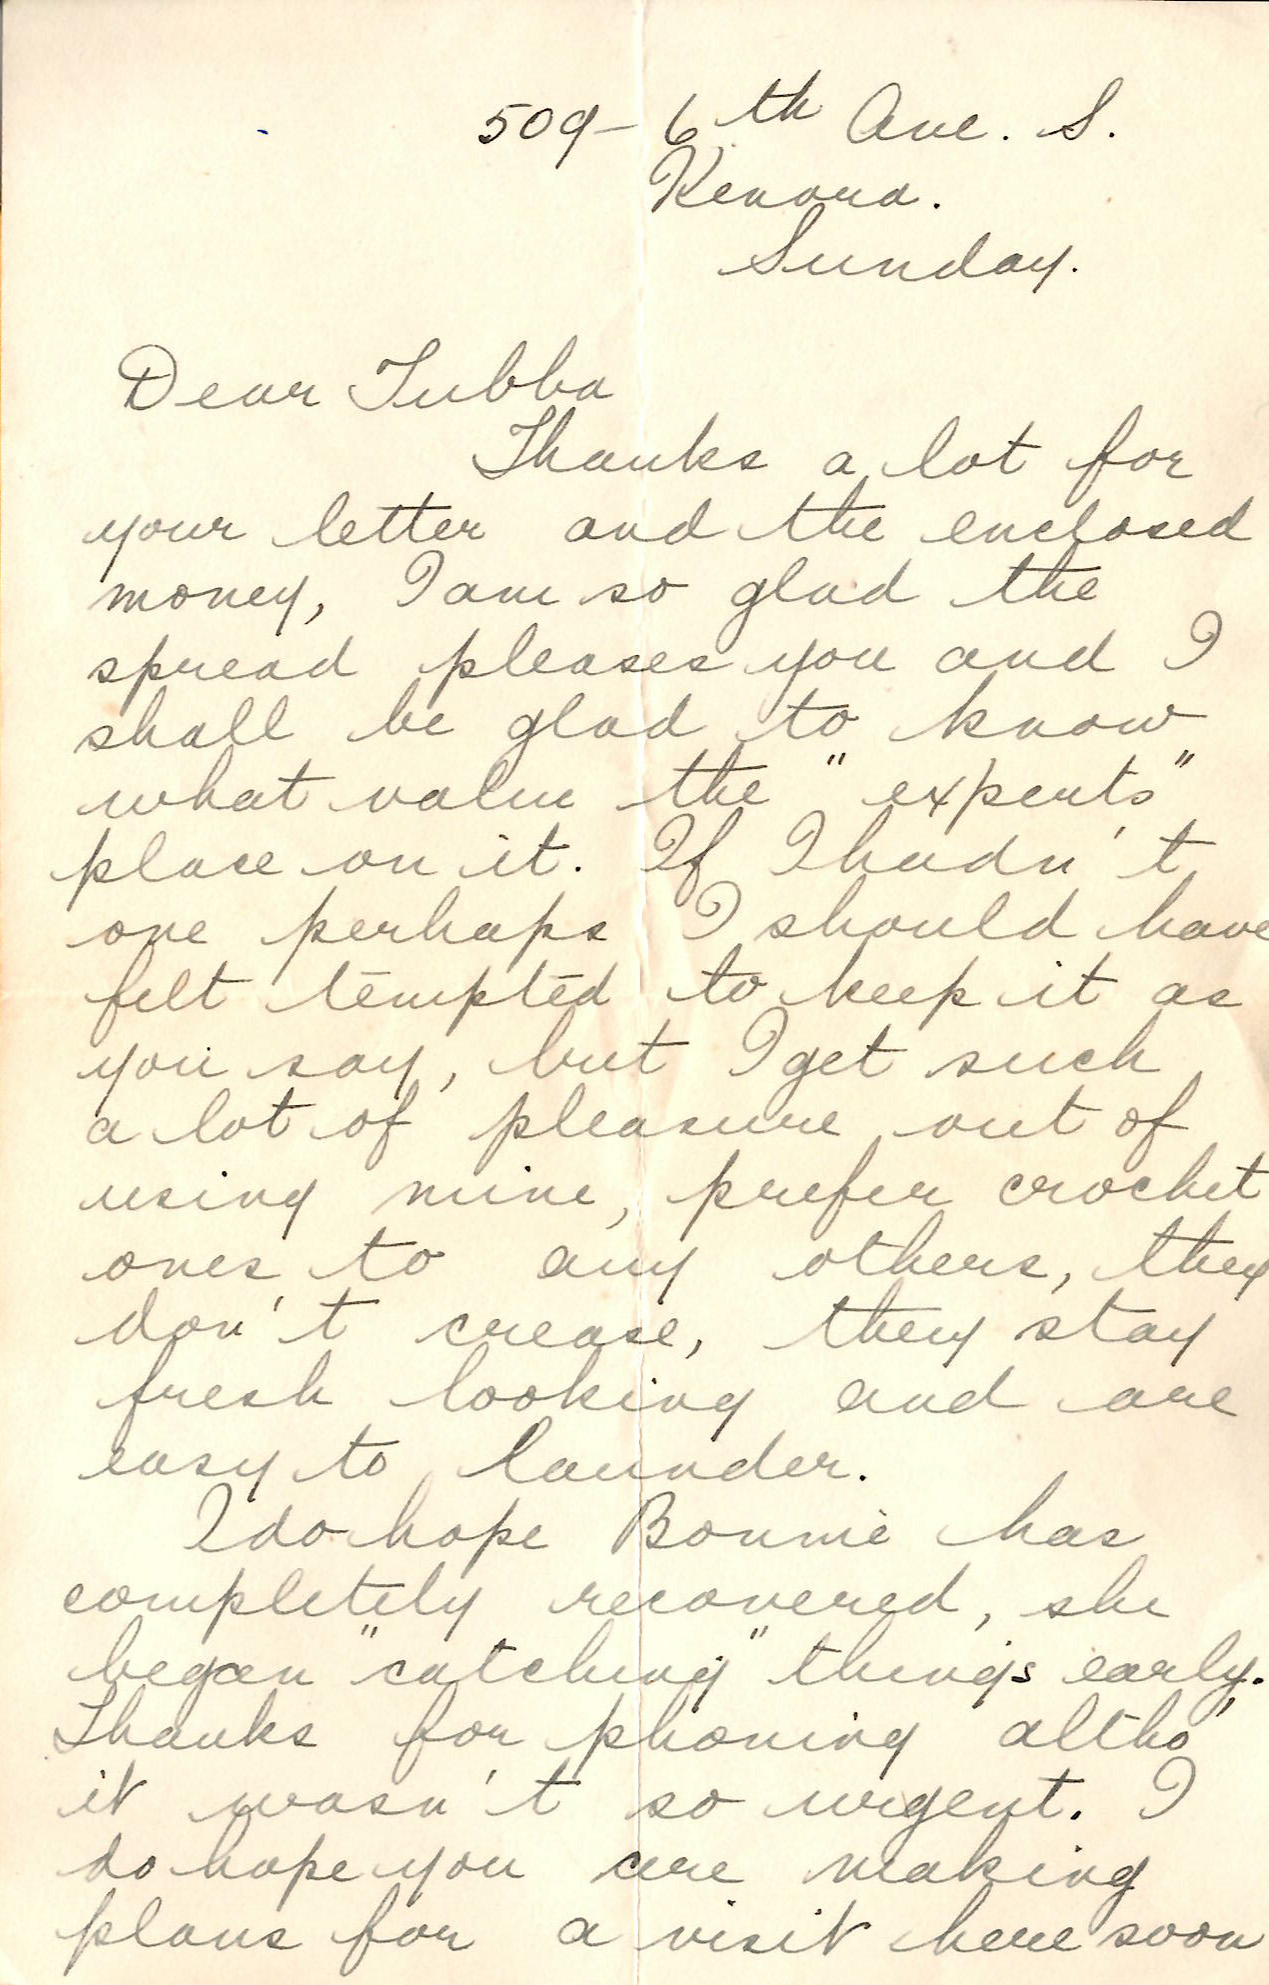 509 - 6th Ave. S.
Kenora.
Sunday.
Dear Tubba
Thanks a lot for
your letter and the enclosed
money, I am so glad the
spread pleases you and I
shall be glad to know
what value the "experts"
place on it. If I hadn't
one perhaps I should have
felt tempted to keep it as
you say, but I get such
a lot of pleasure out of
using mine, prefer crochet
ones to any others, they
don't crease, they stay
fresh looking and are
easy to launder.
I do hope Bonnie has
completely recovered, she
began "catching" things early.
Thanks for phoning altho'
it wasn't so urgent. I
do hope you are making
plans for a visit here soon